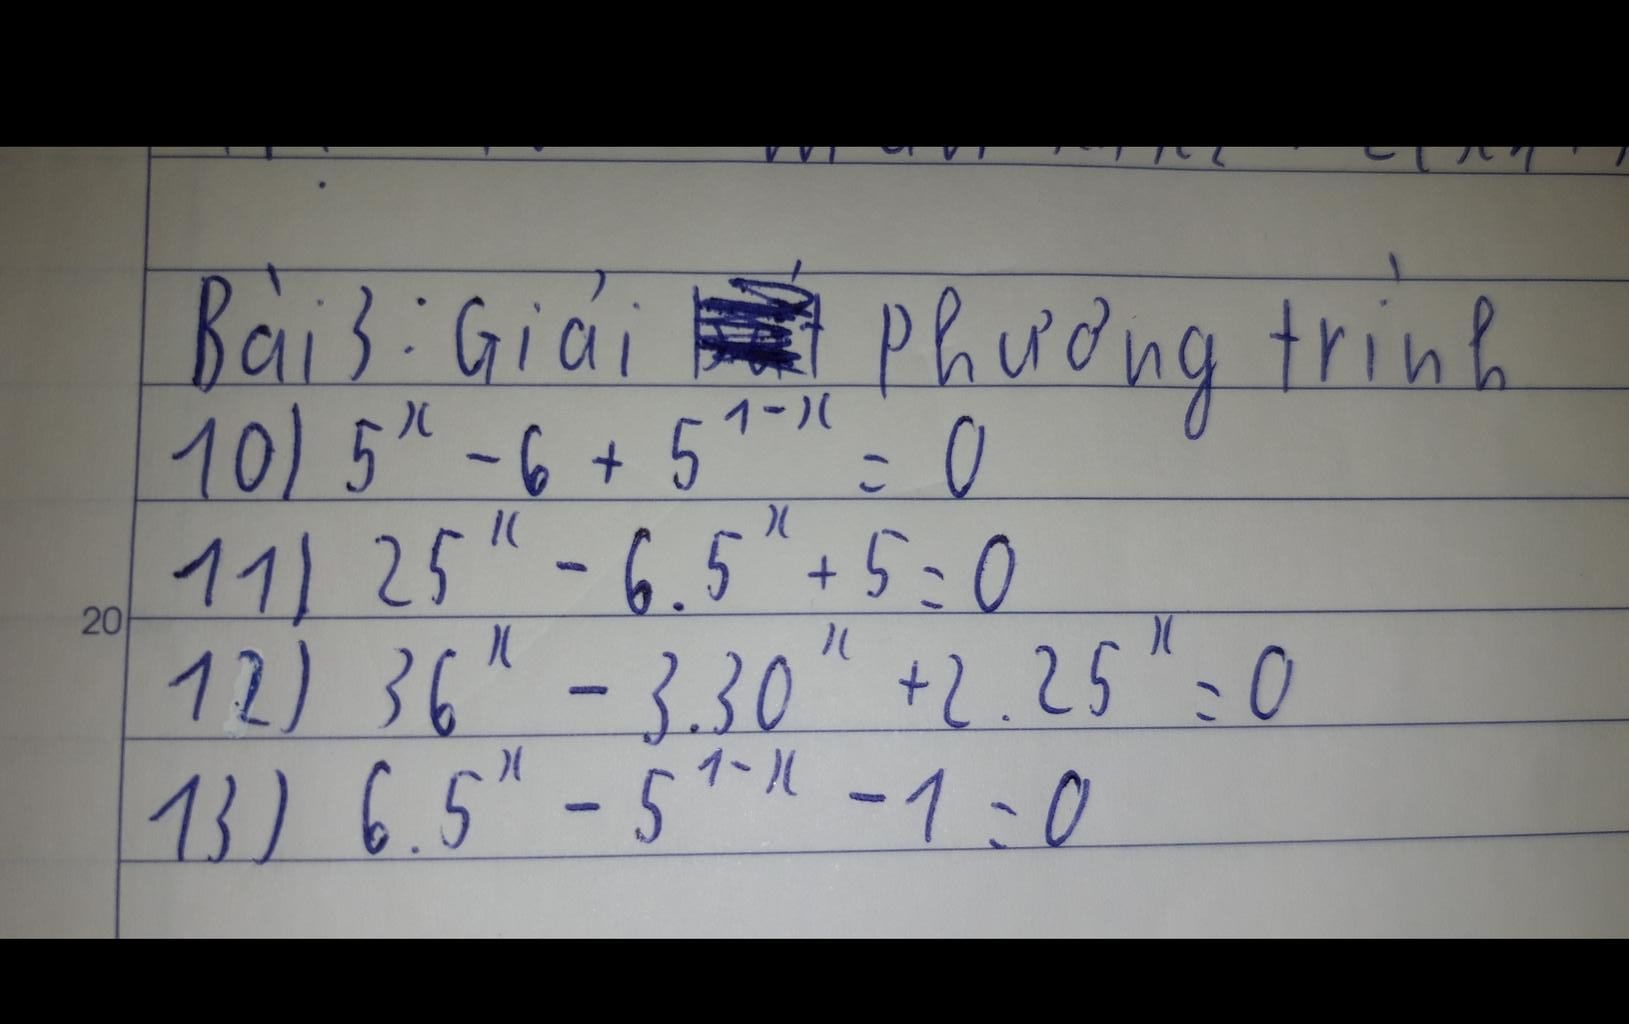 Bài 3: Giải phương trình
10) 5^x - 6 + 5^{1-x} = 0
11) 25^x - 6.5^x + 5 = 0
20
12) 36^x - 3.30^x + 2.25^x = 0
13) 6.5^x - 5^{1-x} - 1 = 0